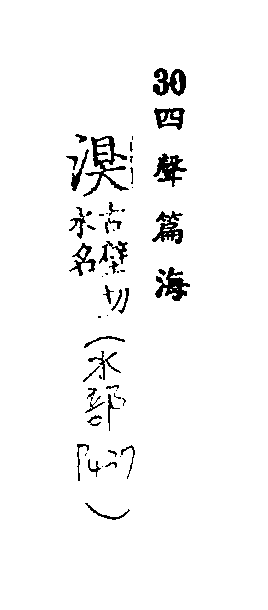 30四聲篇海
湨古壁切水名（水部P427）